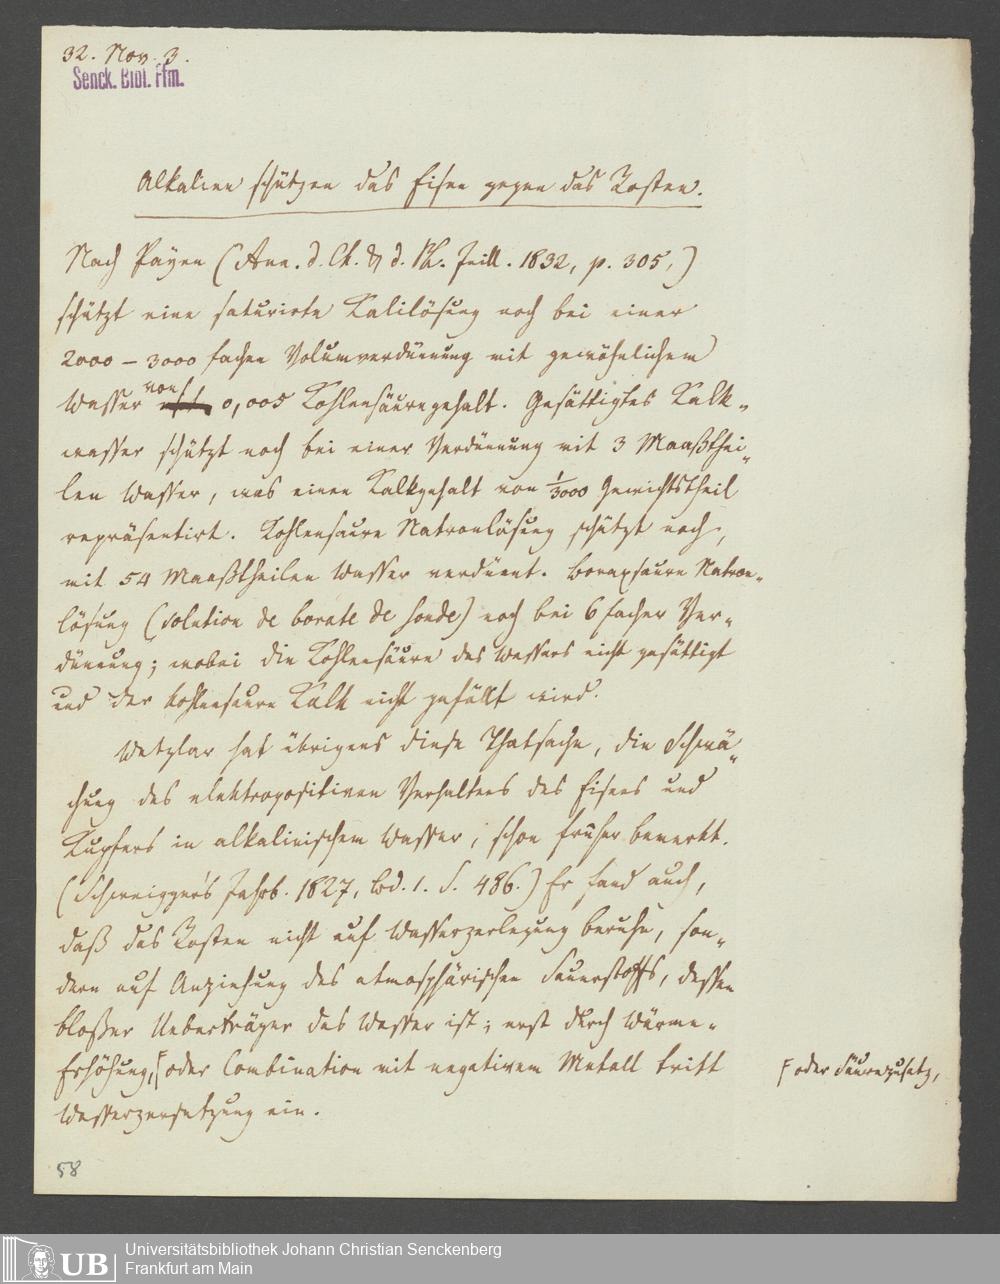 32. Nov. 3.
Senck. Bibl. Ffm.
Alkalien schützen das Eisen gegen das Rosten.
Nach Payen (Ann. d. Ch. & d. Ph. Juill. 1832, p. 305,)
schützt eine saturirte Kalilösung noch bei einer
2000 – 3000 fachen Volumverdünnung mit gewöhnlichem
von
Wasser 0,005 Kohlensäuregehalt. Gesättigtes Kalk-
wasser schützt noch bei einer Verdünnung mit 3 Maaßthei-
len Wasser, was einen Kalkgehalt von 1/3000 Gewichtstheil
repräsentirt. Kohlensaure Natronlösung schützt noch,
mit 54 Maaßtheilen Wasser verdünnt. Boraxsaure Natron-
lösung (solution de borate de soude) noch bei 6 facher Ver-
dünnung; wobei die Kohlensäure des Wassers nicht gesättigt
und der kohlensaure Kalk nicht gefällt wird.
Wetzlar hat übrigens diese Thatsache, die Schwä-
chung des elektropositiven Verhaltens des Eisens und
Kupfers in alkalinischem Wasser, schon früher bemerkt.
(Schweigger's Jahrb. 1827, Bd. 1. S. 486.) Er fand auch,
daß das Rosten nicht auf Wasserzerlegung beruhe, son-
dern auf Anziehung des atmosphärischen Sauerstoffs, dessen
bloßer Ueberträger das Wasser ist; erst durch Wärme-
Erhöhung, oder Combination mit negativem Metall tritt
oder Säurezusatz,
Wasserzersetzung ein.
58
UB
Universitätsbibliothek Johann Christian Senckenberg
Frankfurt am Main